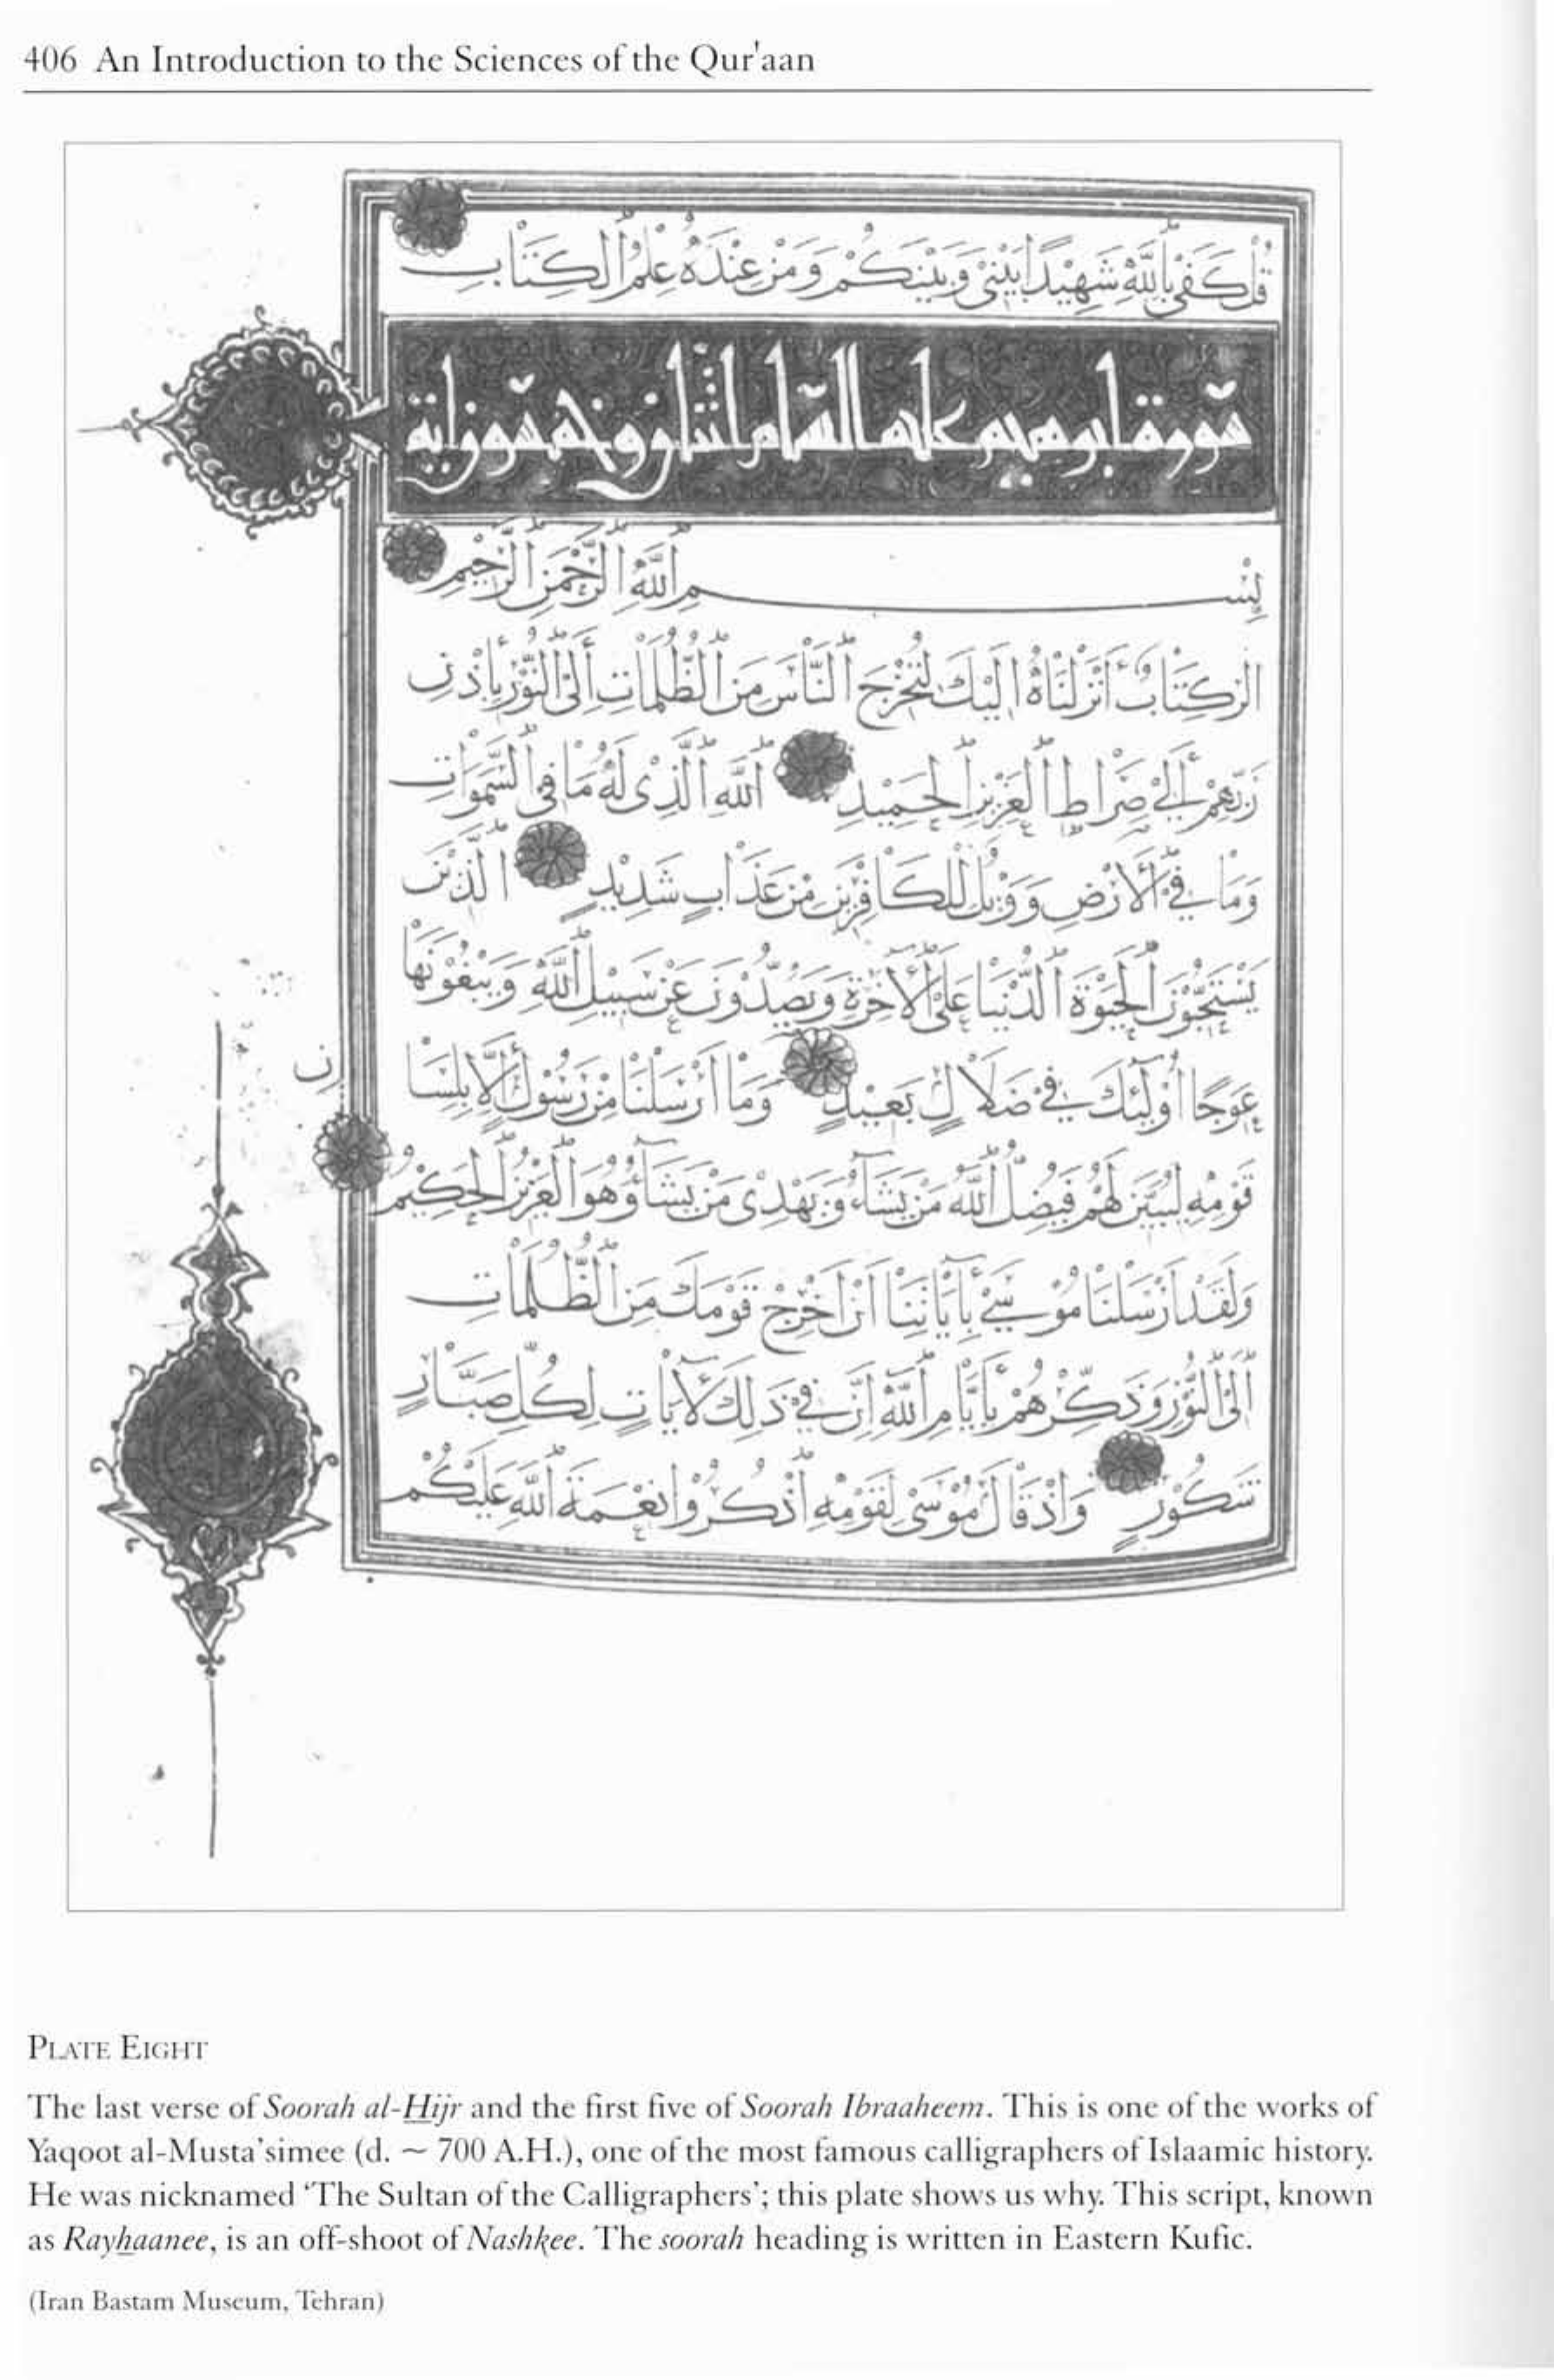 406 An Introduction to the Sciences of the Qur'aan
قُلْ كَفٰى بِاللّٰهِ شَهِيْدًا بَيْنِيْ وَبَيْنَكُمْ وَمَنْ عِنْدَهُ عِلْمُ الْكِتَابِ
سورة ابرهيم عليه السلام اثنان وخمسون اية
بِسْمِ اللّٰهِ الرَّحْمٰنِ الرَّحِيْمِ
الر كِتَابٌ أَنْزَلْنَاهُ إِلَيْكَ لِتُخْرِجَ النَّاسَ مِنَ الظُّلُمَاتِ إِلَى النُّوْرِ بِإِذْنِ
رَبِّهِمْ إِلٰى صِرَاطِ الْعَزِيْزِ الْحَمِيْدِ اللّٰهِ الَّذِيْ لَهُ مَا فِي السَّمٰوَاتِ
وَمَا فِي الْأَرْضِ وَوَيْلٌ لِلْكَافِرِيْنَ مِنْ عَذَابٍ شَدِيْدٍ الَّذِيْنَ
يَسْتَحِبُّوْنَ الْحَيٰوةَ الدُّنْيَا عَلَى الْآخِرَةِ وَيَصُدُّوْنَ عَنْ سَبِيْلِ اللّٰهِ وَيَبْغُوْنَهَا
عِوَجًا أُولٰئِكَ فِيْ ضَلَالٍ بَعِيْدٍ وَمَا أَرْسَلْنَا مِنْ رَسُوْلٍ إِلَّا بِلِسَا
نِ
قَوْمِهِ لِيُبَيِّنَ لَهُمْ فَيُضِلُّ اللّٰهُ مَنْ يَشَاءُ وَيَهْدِيْ مَنْ يَشَاءُ وَهُوَ الْعَزِيْزُ الْحَكِيْمُ
وَلَقَدْ أَرْسَلْنَا مُوْسٰى بِآيَاتِنَا أَنْ أَخْرِجْ قَوْمَكَ مِنَ الظُّلُمَاتِ
إِلَى النُّوْرِ وَذَكِّرْهُمْ بِأَيَّامِ اللّٰهِ إِنَّ فِيْ ذٰلِكَ لَآيَاتٍ لِكُلِّ صَبَّارٍ
شَكُوْرٍ وَإِذْ قَالَ مُوْسٰى لِقَوْمِهِ اذْكُرُوْا نِعْمَةَ اللّٰهِ عَلَيْكُمْ
PLATE EIGHT
The last verse of Soorah al-Hijr and the first five of Soorah Ibraaheem. This is one of the works of
Yaqoot al-Musta'simee (d. ~ 700 A.H.), one of the most famous calligraphers of Islaamic history.
He was nicknamed 'The Sultan of the Calligraphers'; this plate shows us why. This script, known
as Rayhaanee, is an off-shoot of Nashkee. The soorah heading is written in Eastern Kufic.
(Iran Bastam Museum, Tehran)